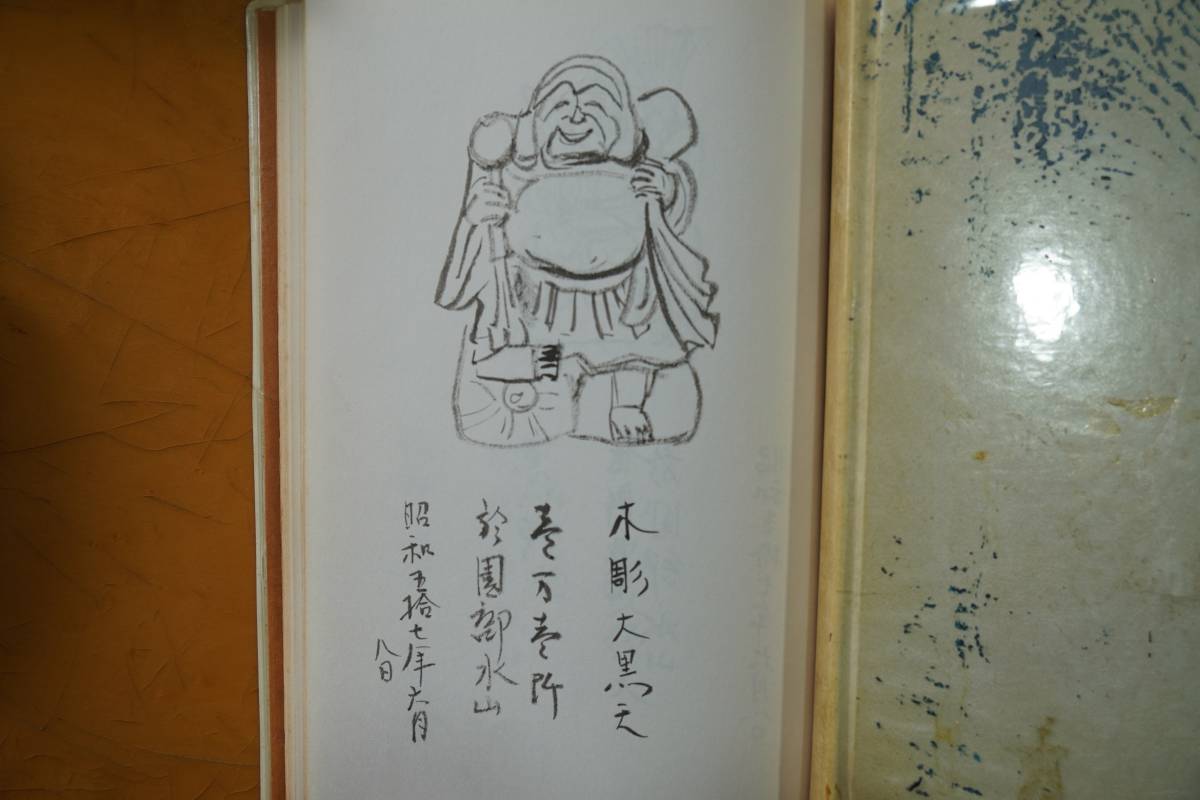 木彫大黒天
壱万壱阡
於園部水山
昭和五拾七年六月
八日